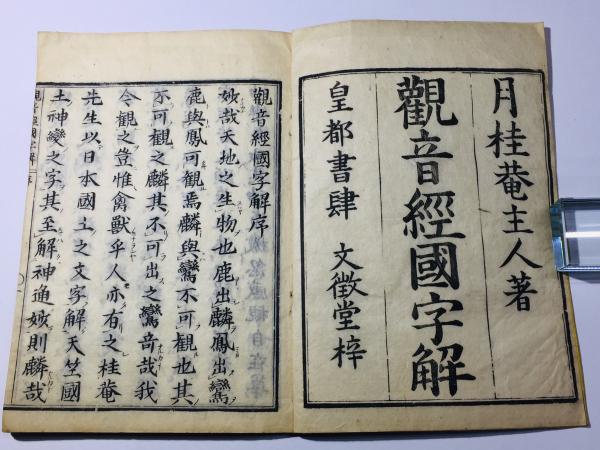 月桂菴主人著
觀音經國字解
皇都書肆 文徴堂梓
觀音經國字解序
妙哉天地之生物也鹿出麟鳳出鸞
鹿與鳳可觀焉麟與鸞不可觀也其
不可觀之麟其不可出之鸞奇哉我
令觀之豈惟禽獸乎人亦有之桂菴
先生以日本國土之文字解天竺國
土神變之字其至解神通妙則麟哉